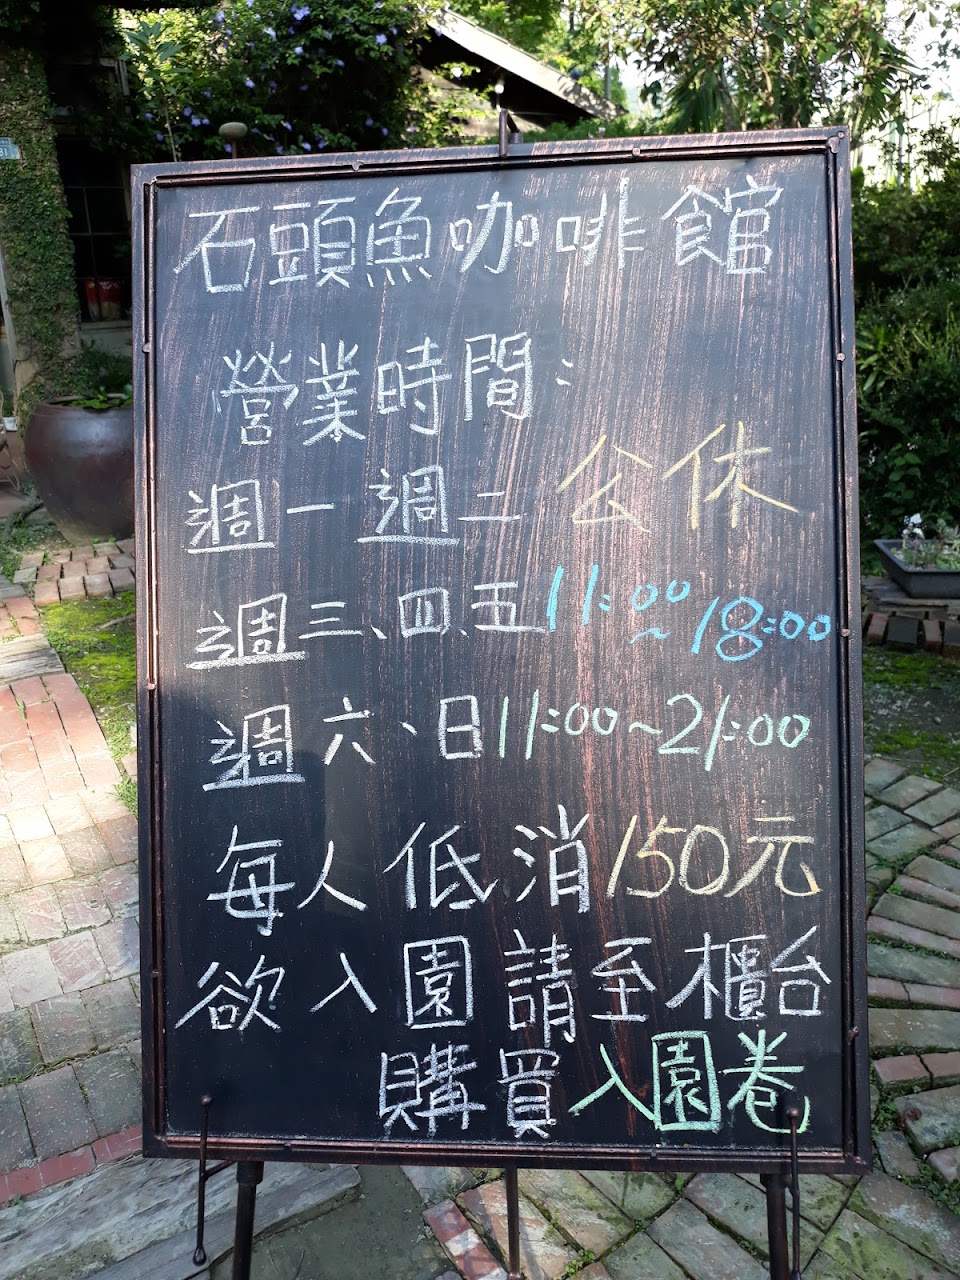 石頭魚咖啡館
營業時間：
週一週二公休
週三、四、五 11:00~18:00
週六、日 11:00~21:00
每人低消150元
欲入園請至櫃台
購買入園卷